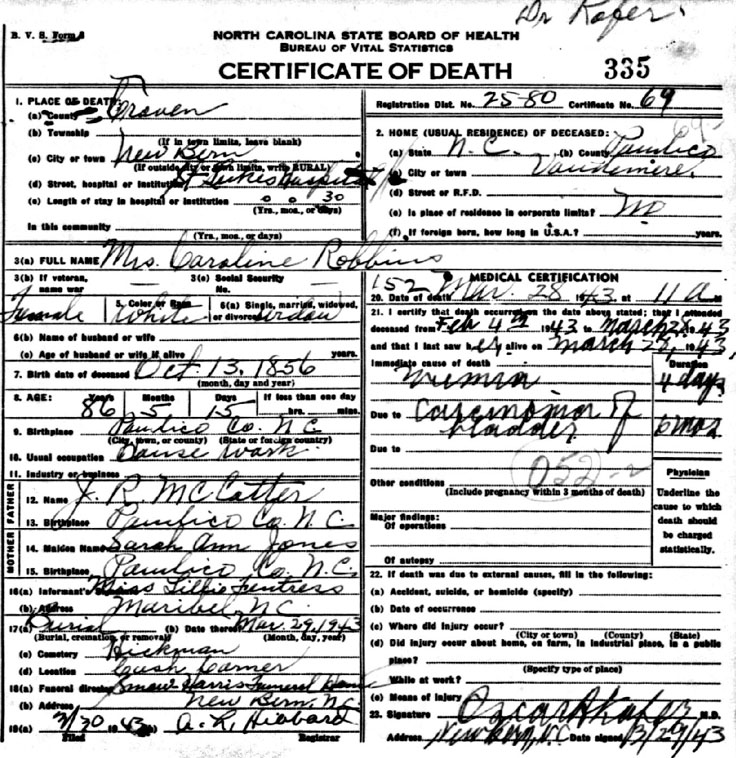 Dr Kafer
B. V. S. Form 8
NORTH CAROLINA STATE BOARD OF HEALTH
BUREAU OF VITAL STATISTICS
CERTIFICATE OF DEATH 335
1. PLACE OF DEATH:
(a) County Craven
(b) Township
(If in town limits, leave blank)
(c) City or town New Bern
(If outside city or town limits, write RURAL)
(d) Street, hospital or institution St Lukes Hospital
(e) Length of stay in hospital or institution 0 0 30
(Yrs., mos., or days)
In this community
(Yrs., mos., or days)
Registration Dist. No. 25-80 Certificate No. 69
2. HOME (USUAL RESIDENCE) OF DECEASED:
(a) State N. C. (b) County Pamlico
(c) City or town Vandemere
(d) Street or R.F.D.
(e) Is place of residence in corporate limits? No
(f) If foreign born, how long in U.S.A.? years.
3(a) FULL NAME Mrs. Caroline Robbins
3(b) If veteran, name war
3(c) Social Security No.
Female
5. Color or Race White
6(a) Single, married, widowed, or divorced Widow
6(b) Name of husband or wife
(c) Age of husband or wife if alive years.
7. Birth date of deceased Oct. 13, 1856
(month, day and year)
8. AGE: Years Months Days If less than one day
86 5 15 hrs. mins.
9. Birthplace Pamlico Co. N C
(City, town, or county) (State or foreign country)
10. Usual occupation House Work
11. Industry or business
FATHER
12. Name J. R. McCotter
13. Birthplace Pamlico Co. N. C.
MOTHER
14. Maiden Name Sarah Ann Jones
15. Birthplace Pamlico Co. N. C.
16(a) Informant's Miss Lillie Fentress
(b) Address Maribel N.C.
17(a) Burial (b) Date thereof Mar. 29, 1943
(Burial, cremation, or removal) (Month, day, year)
(c) Cemetery Hickman
(d) Location Cash Corner
18(a) Funeral director Harris Funeral Home
(b) Address New Bern, N.C.
19(a) 3/30 1943 (b) A. R. Hibbard
Filed Registrar
152
MEDICAL CERTIFICATION
20. Date of death Mar. 28 1943 at 11 a M
21. I certify that death occurred on the date above stated; that I attended
deceased from Feb 4th 1943 to March 28 1943
and that I last saw her alive on March 28, 1943
Immediate cause of death Duration
Uremia 4 days
Due to Carcinoma of bladder 6 mos
Due to
052-2
Other conditions
(Include pregnancy within 3 months of death)
Major findings:
Of operations
Of autopsy
Physician
Underline the cause to which death should be charged statistically.
22. If death was due to external causes, fill in the following:
(a) Accident, suicide, or homicide (specify)
(b) Date of occurrence
(c) Where did injury occur?
(City or town) (County) (State)
(d) Did injury occur about home, on farm, in industrial place, in a public
place?
(Specify type of place)
While at work?
(e) Means of Injury
23. Signature Oscar A Kafer M.D.
Address New Bern, N.C Date signed 3/29/43